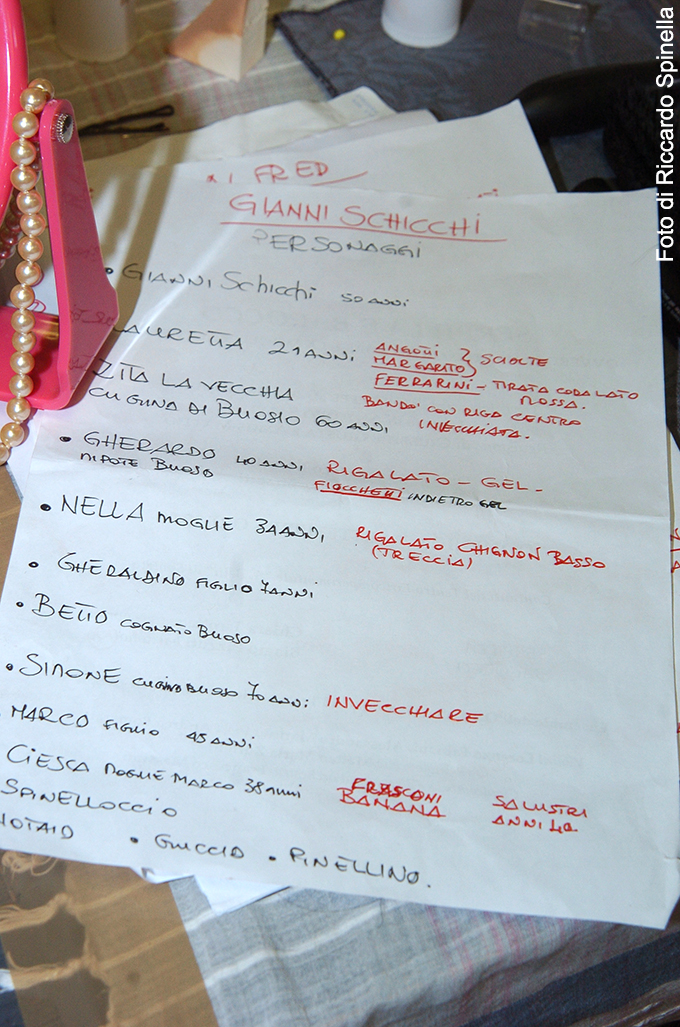 Foto di Riccardo Spinella
1 FRED
GIANNI SCHICCHI
PERSONAGGI
• GIANNI SCHICCHI 50 ANNI
LAURETTA 21 ANNI ANGOUI } SCIOLTE
MARGARITO }
FERRARINI - TIRATA CODA LATO
ROSSA.
ZITA LA VECCHIA BANDO' CON RIGA CENTRO
CUGINA DI BUOSIO 60 ANNI INVECCHIATA.
• GHERARDO 40 ANNI RIGA LATO - GEL -
NIPOTE BUOSO FIOCCHEGUI INDIETRO GEL
• NELLA MOGLIE 34 ANNI RIGA LATO CHIGNON BASSO
(TRECCIA)
• GHERALDINO FIGLIO 7 ANNI
• BETTO COGNATO BUOSO
• SIMONE CUGINO BUOSO 70 ANNI INVECCHIARE
MARCO FIGLIO 45 ANNI
CIESCA MOGLIE MARCO 38 ANNI FRASCONI SALUSTRI
BANANA ANNI 40
SPINELLOCCIO
NOTAIO • GUCCIO • PINELLINO.